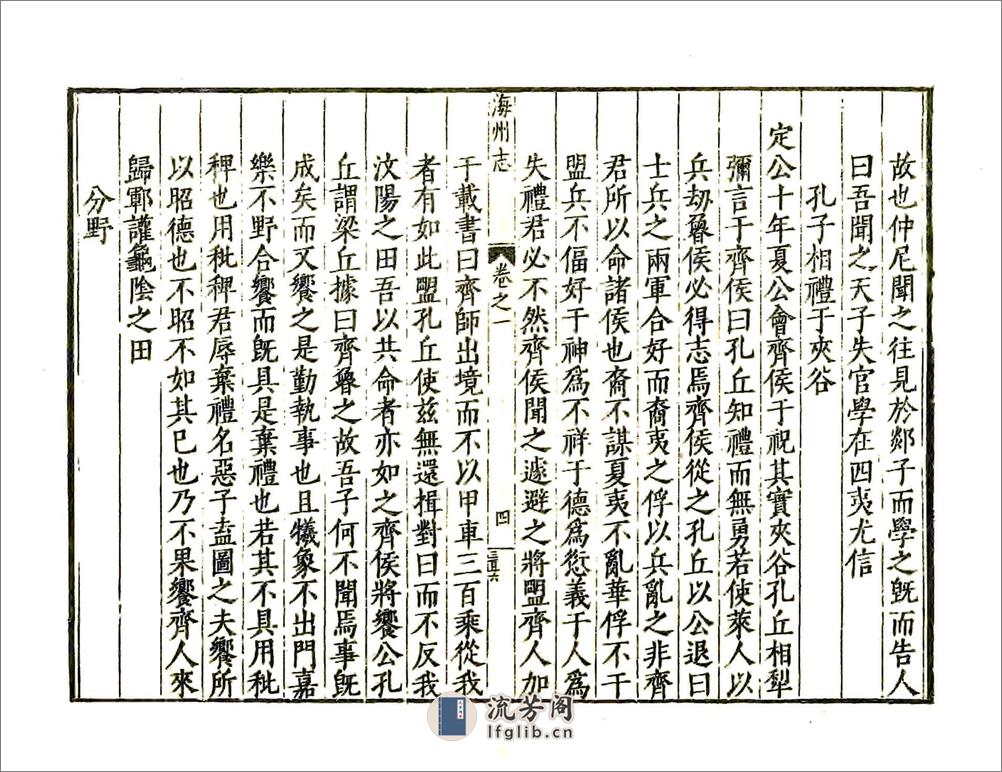 故也仲尼聞之往見於郯子而學之旣而告人
曰吾聞之天子失官學在四夷尤信
孔子相禮于夾谷
定公十年夏公會齊侯于祝其實夾谷孔丘相犁
彌言于齊侯曰孔丘知禮而無勇若使萊人以
兵劫魯侯必得志焉齊侯從之孔丘以公退曰
士兵之兩軍合好而裔夷之俘以兵亂之非齊
君所以命諸侯也裔不謀夏夷不亂華俘不干
盟兵不偪好于神爲不祥于德爲愆義于人爲
失禮君必不然齊侯聞之遽避之將盟齊人加
海州志
卷之一
四
于載書曰齊師出境而不以甲車三百乘從我
者有如此盟孔丘使茲無還揖對曰而不反我
汶陽之田吾以共命者亦如之齊侯將饗公孔
丘謂梁丘據曰齊魯之故吾子何不聞焉事旣
成矣而又饗之是勤執事也且犧象不出門嘉
樂不野合饗而旣具是棄禮也若其不具用秕
稗也用秕稗君辱棄禮名惡子盍圖之夫饗所
以昭德也不昭不如其已也乃不果饗齊人來
歸鄆讙龜陰之田
分野
流芳阁
lfglib.cn